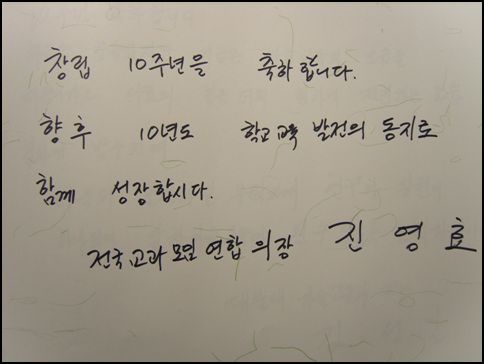 창립 10주년을 축하합니다.
향후 10년도 학교교육 발전의 동지로
함께 성장합시다.
전국교과모임 연합 의장 진영효